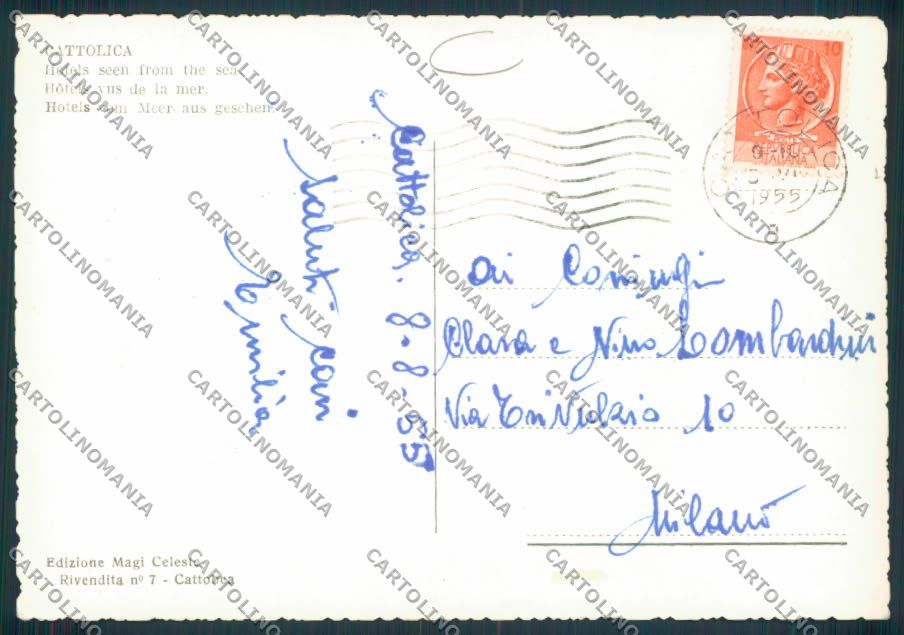 CATTOLICA
Hotels seen from the sea.
Hôtels vus de la mer.
Hotels vom Meer aus gesehen.
Cattolica. 8-8-55
Saluti cari
Emilia
10
REPUBBLICA
ITALIANA
1955
Ai Coniugi
Clara e Nino Lombardini
Via 10
Milano
Edizione Magi Celeste
Rivendita nº 7 - Cattolica
CARTOLINOMANIA